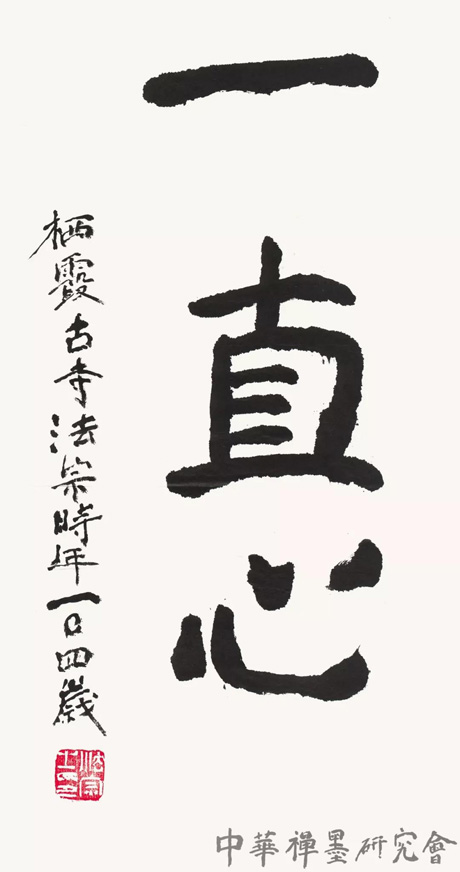 一直心
栖霞古寺法宗時年一〇四歲
法宗
中華禪墨研究會